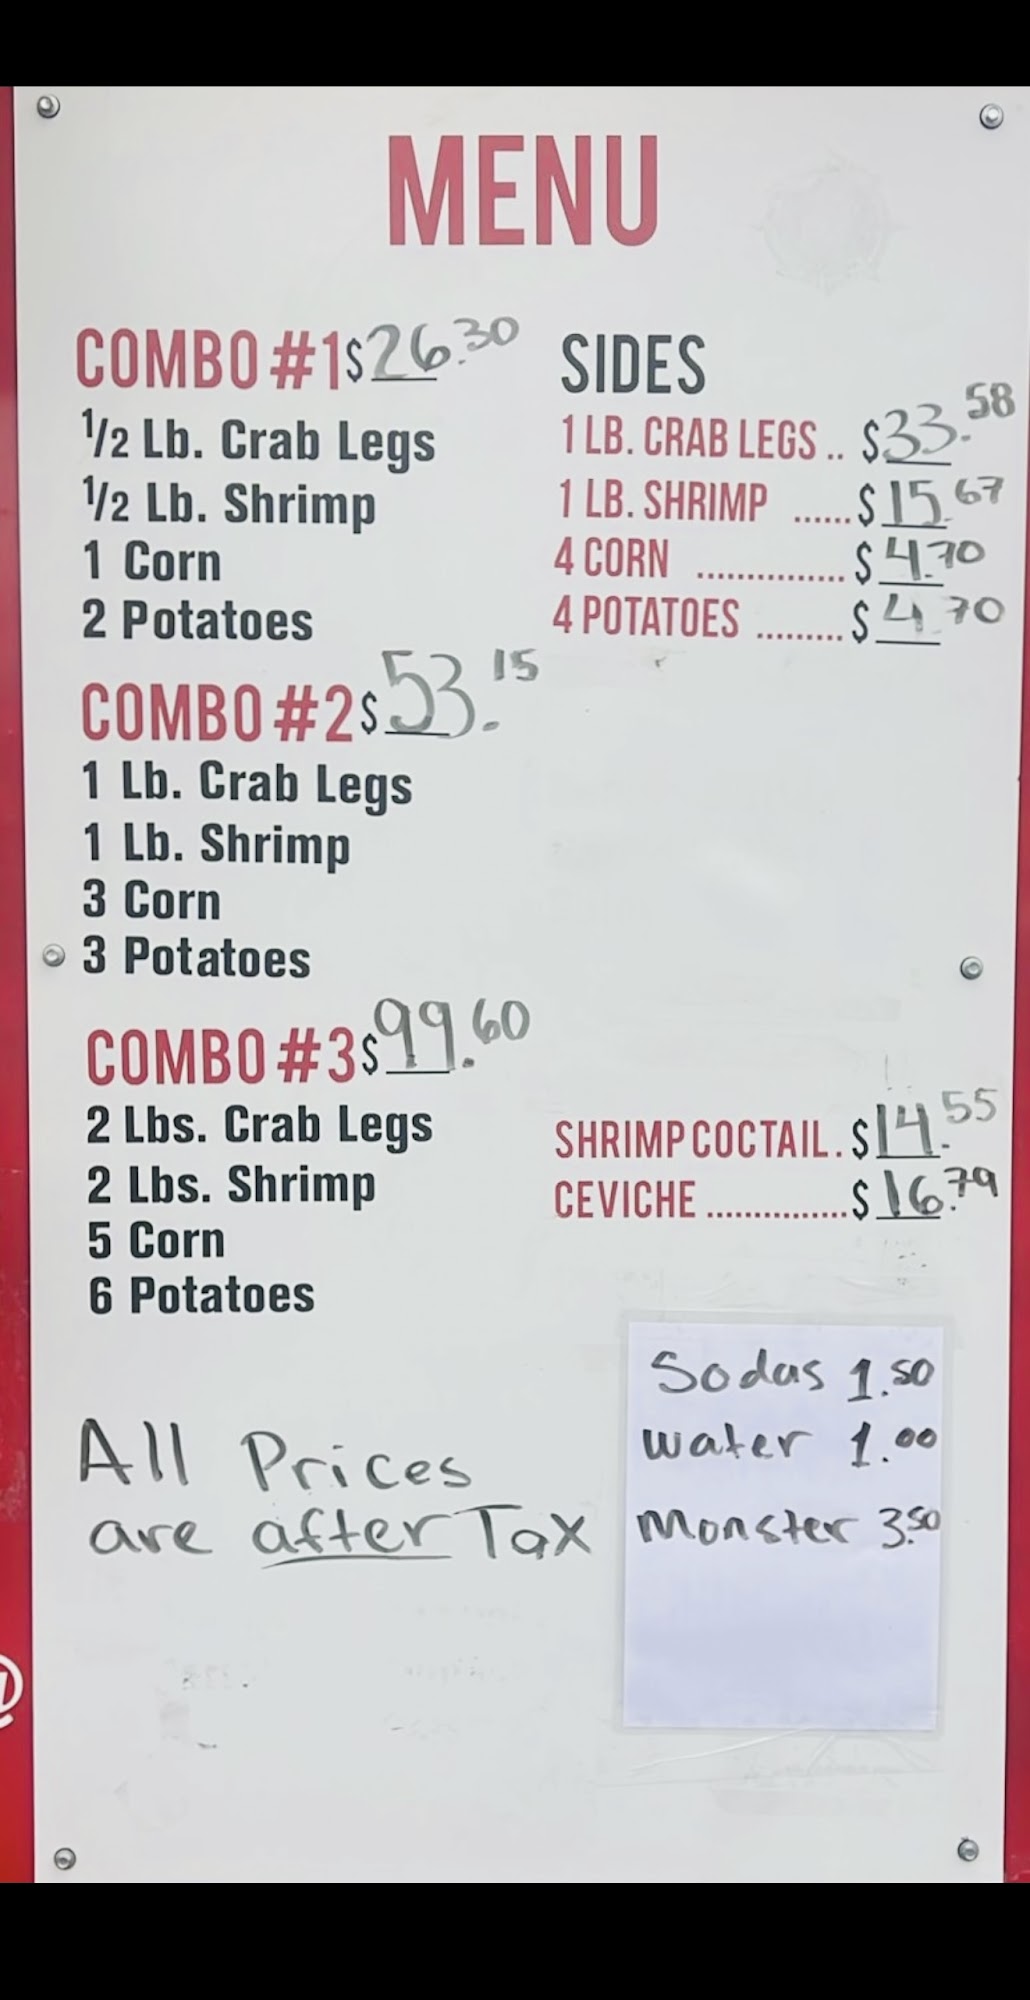 MENU
COMBO #1 $26.30
1/2 Lb. Crab Legs
1/2 Lb. Shrimp
1 Corn
2 Potatoes
COMBO #2 $53.15
1 Lb. Crab Legs
1 Lb. Shrimp
3 Corn
3 Potatoes
COMBO #3 $99.60
2 Lbs. Crab Legs
2 Lbs. Shrimp
5 Corn
6 Potatoes
SIDES
1 LB. CRAB LEGS .. $33.58
1 LB. SHRIMP ...... $15.67
4 CORN ............... $4.70
4 POTATOES ......... $4.70
SHRIMP COCTAIL. $14.55
CEVICHE ............... $16.79
All Prices
are after Tax
Sodas 1.50
Water 1.00
Monster 3.50
@